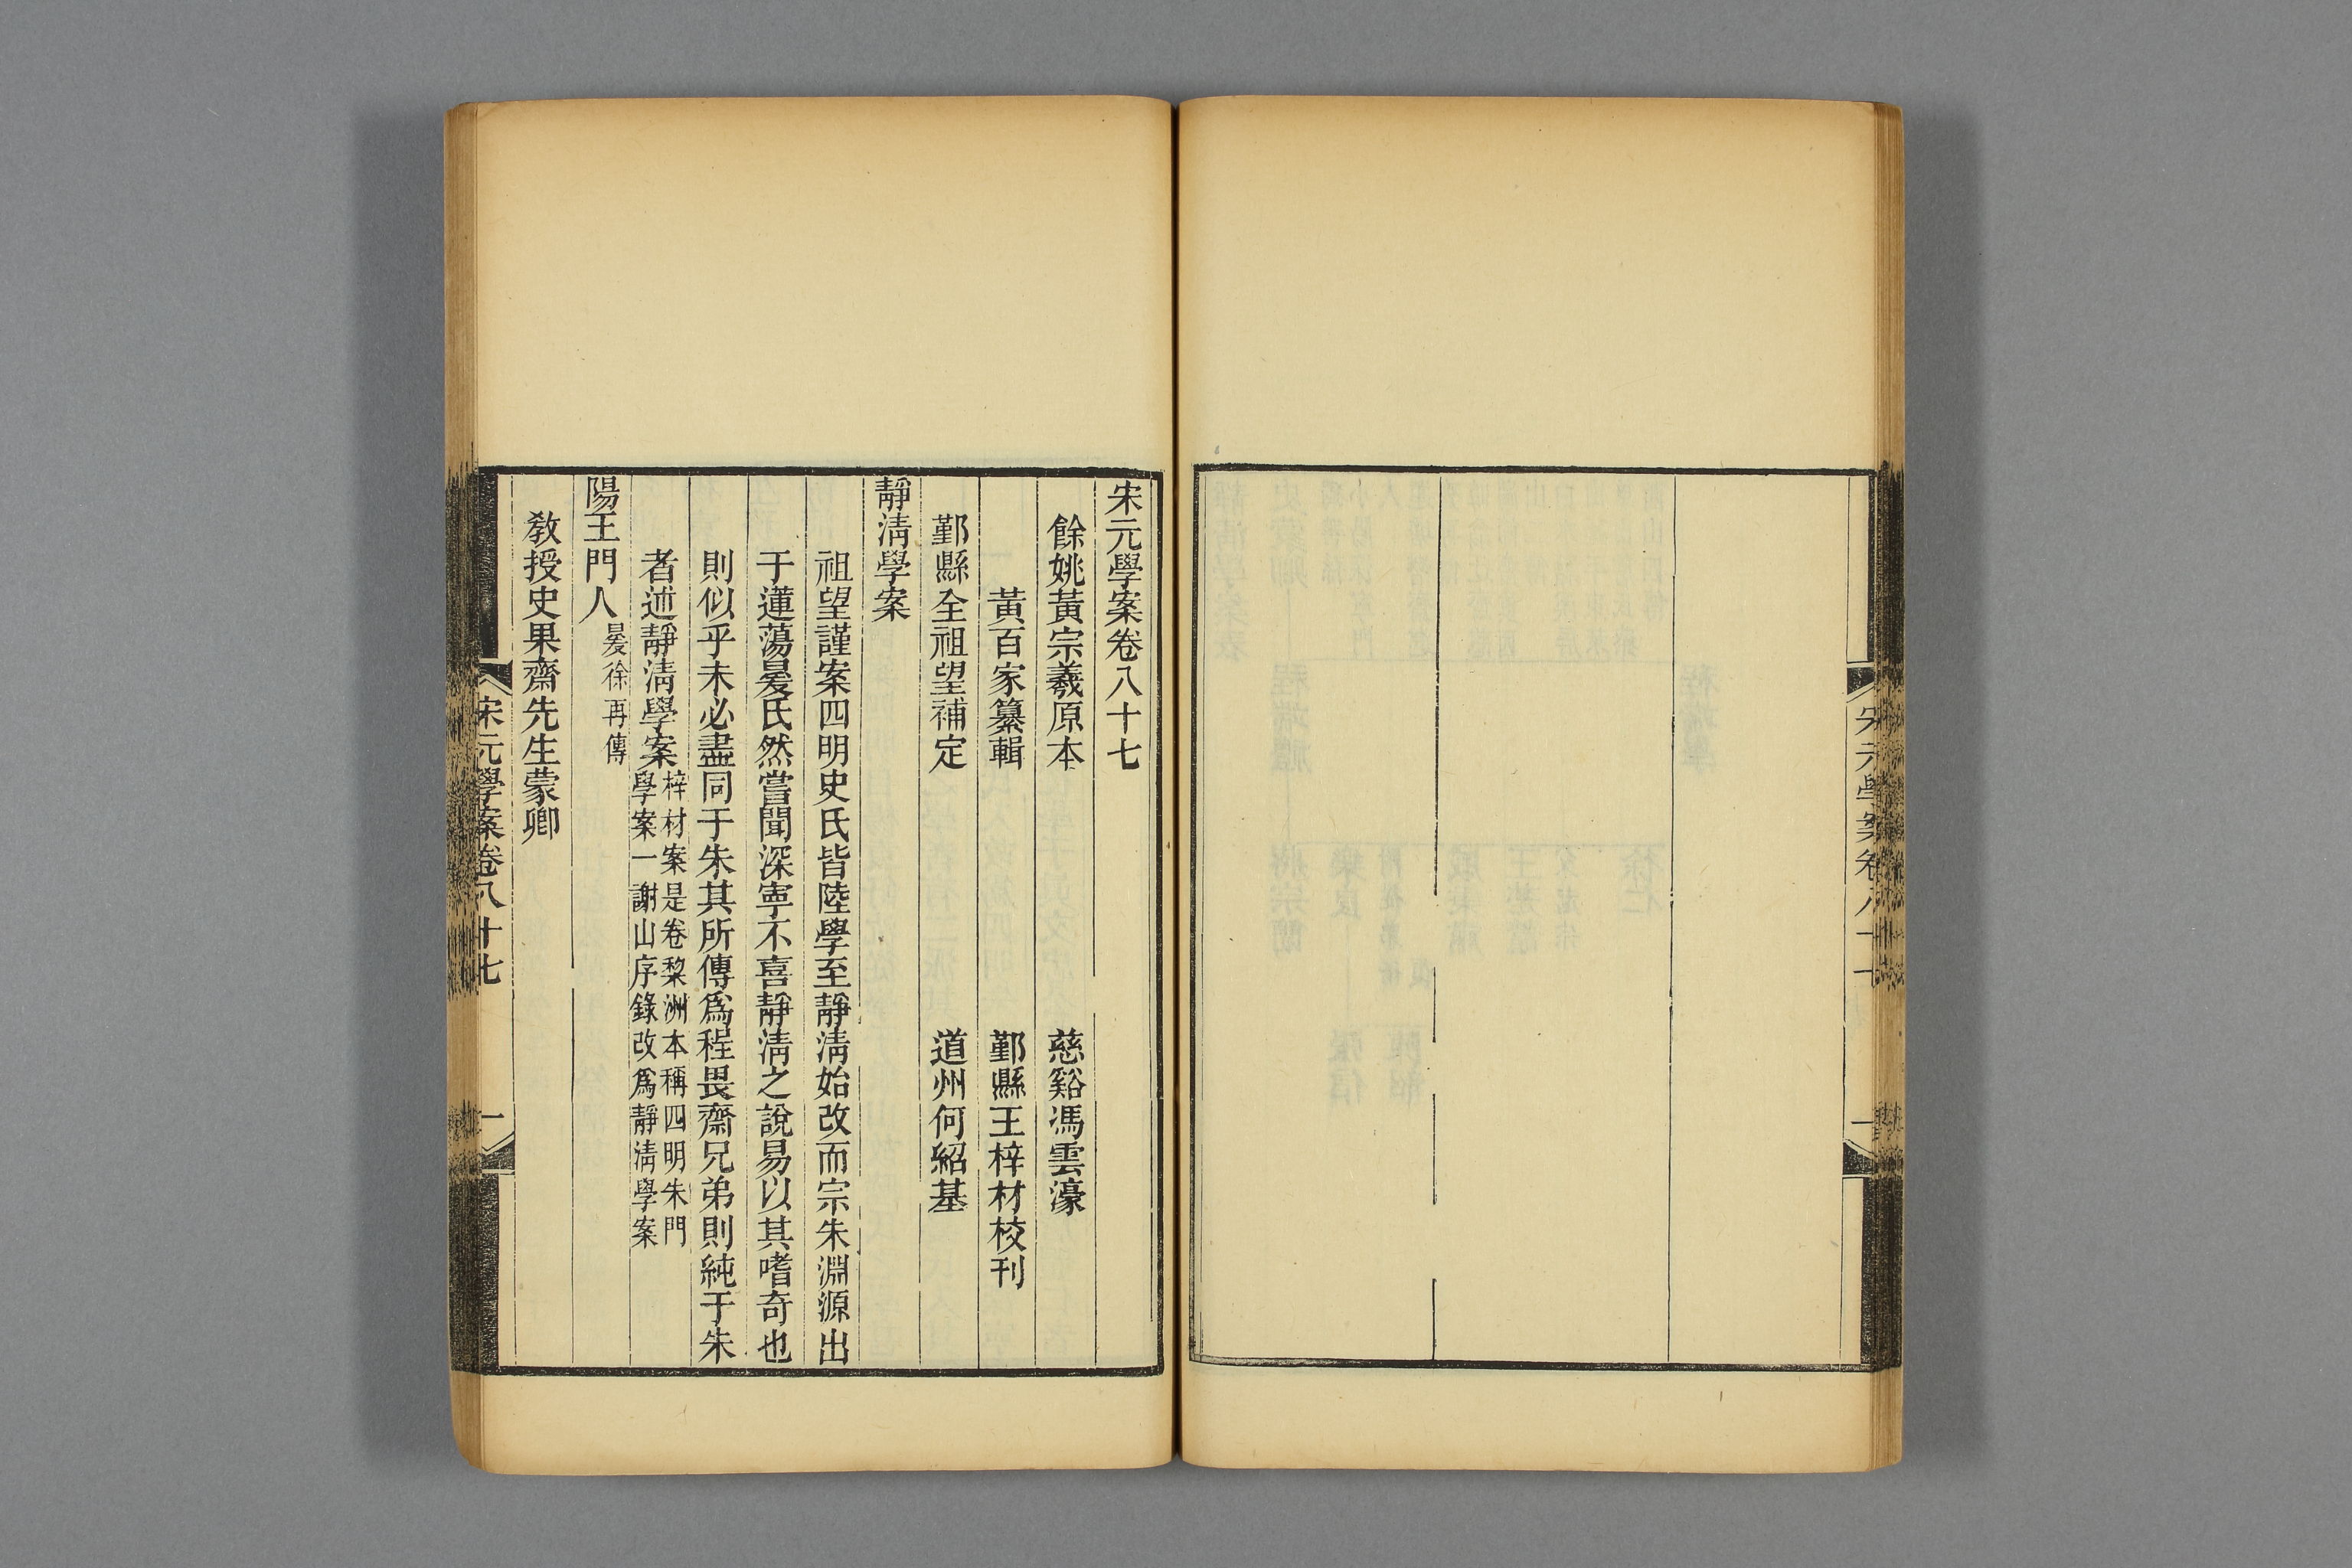 宋元學案卷八十七
餘姚黃宗羲原本　慈谿馮雲濠
黃百家纂輯　鄞縣王梓材校刊
鄞縣全祖望補定　道州何紹基
靜淸學案
祖望謹案四明史氏皆陸學至靜淸始改而宗朱淵源出
于蓮蕩㬊氏然嘗聞深寧不喜靜淸之說易以其嗜奇也
則似乎未必盡同于朱其所傳爲程畏齋兄弟則純于朱
者述靜淸學案
梓材案是卷棃洲本稱四明朱門
學案一謝山序錄改爲靜淸學案
陽王門人
㬊徐再傳
敎授史果齋先生蒙卿
宋元學案卷八十七
一